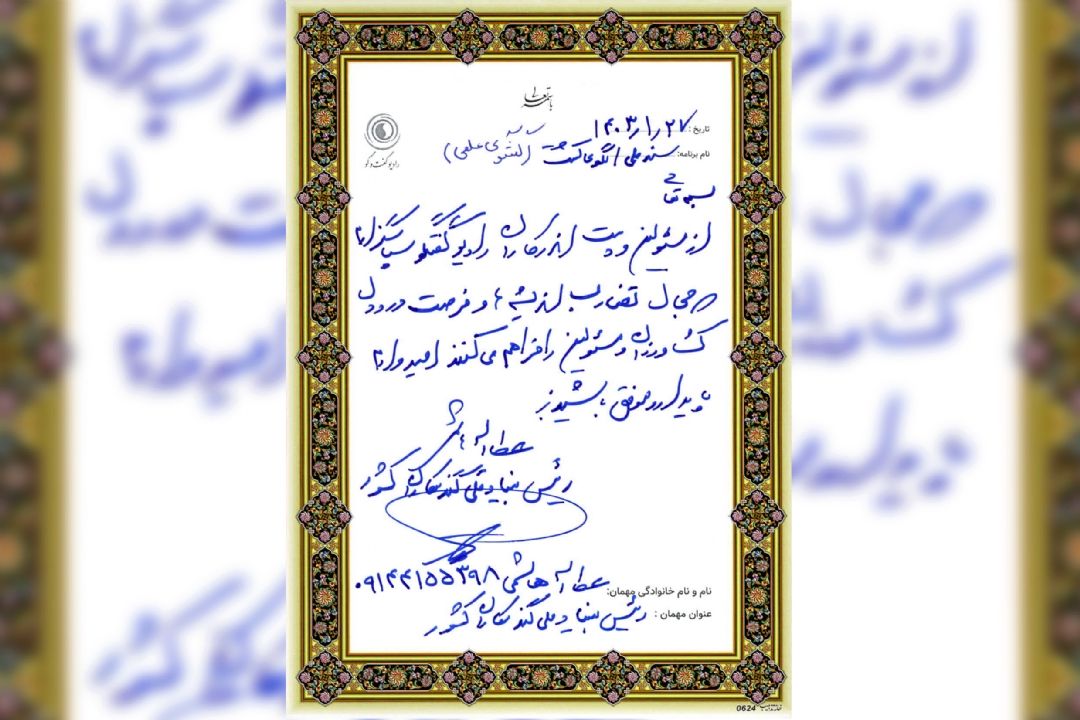 باسمه تعالی
رادیو گفت و گو
تاریخ: ۱۴۰۳/۱/۲۷
نام برنامه: سند ملی الگوی کشت (گفتگوی علمی)
بسمه تعالی
از مسئولین و دست اندرکاران رادیو گفتگو سپاسگزارم
که مجال تضارب اندیشه ها و فرصت
کشاورزان و مسئولین را فراهم می‌کنند امیدوارم
پایدار و موفق باشید
عطااله هاشمی
رئیس بنیاد ملی گندمکاران کشور
نام و نام خانوادگی مهمان: عطااله هاشمی ۰۹۱۴۴۱۵۵۳۹۸
عنوان مهمان: رئیس بنیاد ملی گندمکاران کشور
0624